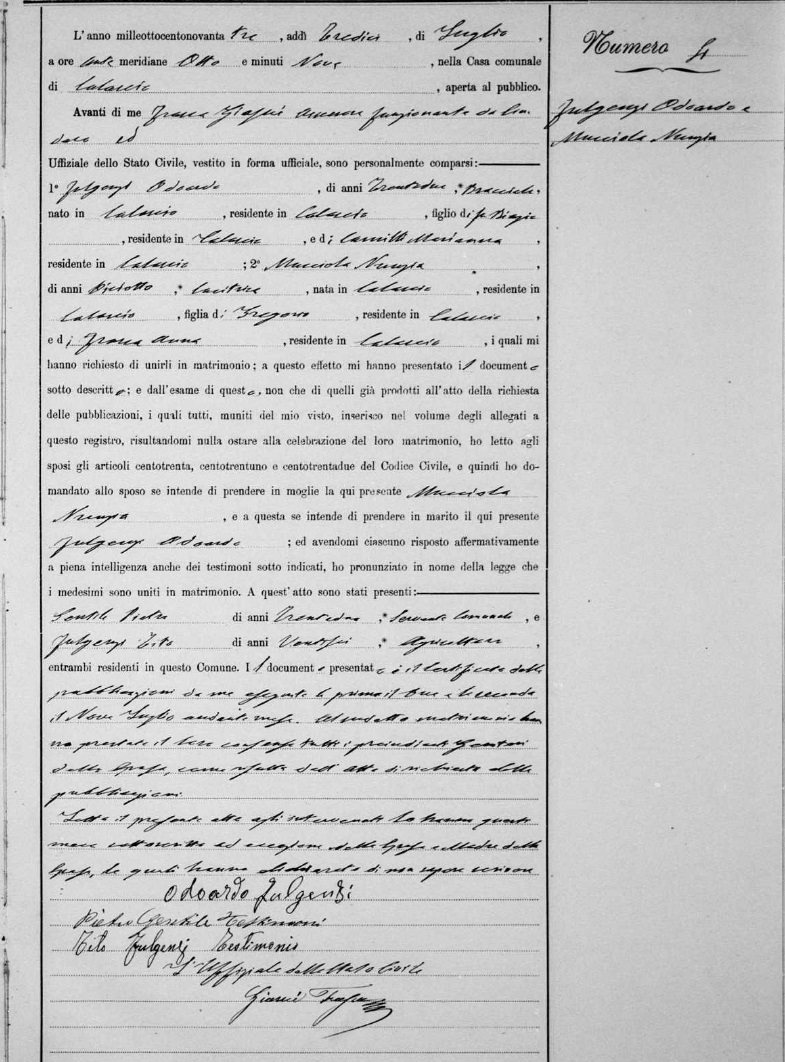 L'anno milleottocentonovanta tre , addì Tredici , di Luglio ,
a ore ante meridiane Otto e minuti Nove , nella Casa comunale
di Calascio , aperta al pubblico.
Avanti di me Frasca Assessore funzionante da Sin-
daco ed
Uffiziale dello Stato Civile, vestito in forma ufficiale, sono personalmente comparsi:
1° Fulgenzi Odoardo , di anni Trentadue , Bracciale,
nato in Calascio , residente in Calascio , figlio di fu Biagio
, residente in Calascio , e di Marianna ,
residente in Calascio ; 2° Mucciola Nunzia ,
di anni Diciotto , nata in Calascio , residente in
Calascio , figlia di Gregorio , residente in Calascio ,
e di Frasca Anna , residente in Calascio , i quali mi
hanno richiesto di unirli in matrimonio; a questo effetto mi hanno presentato il documento
sotto descritto; e dall'esame di questo, non che di quelli già prodotti all'atto della richiesta
delle pubblicazioni, i quali tutti, muniti del mio visto, inserisco nel volume degli allegati a
questo registro, risultandomi nulla ostare alla celebrazione del loro matrimonio, ho letto agli
sposi gli articoli centotrenta, centotrentuno e centotrentadue del Codice Civile, e quindi ho do-
mandato allo sposo se intende di prendere in moglie la qui presente Mucciola
Nunzia , e a questa se intende di prendere in marito il qui presente
Fulgenzi Odoardo ; ed avendomi ciascuno risposto affermativamente
a piena intelligenza anche dei testimoni sotto indicati, ho pronunziato in nome della legge che
i medesimi sono uniti in matrimonio. A quest'atto sono stati presenti:
Gentile Pietro di anni Trentadue , Servente Comunale , e
Fulgenzi Tito di anni Ventisei , Agricoltore ,
entrambi residenti in questo Comune. Il documento presentato è il Certificato delle
pubblicazioni da me eseguite la prima il Due e la seconda
il Nove Luglio andante mese. Al suddetto matrimonio han-
no prestato il loro consenso tutti i Genitori
della Sposa, come risulta dall'atto di richiesta delle
pubblicazioni.
Letto il presente atto agli intervenuti lo hanno questi
meco sottoscritto ad eccezione della Sposa e Madre della
Sposa, le quali hanno dichiarato di non sapere scrivere
Odoardo Fulgenzi
Pietro Gentile Testimoni
Tito Fulgenzi Testimonio
L'Uffiziale dello Stato Civile
Frasca
Numero 4
Fulgenzi Odoardo e
Mucciola Nunzia